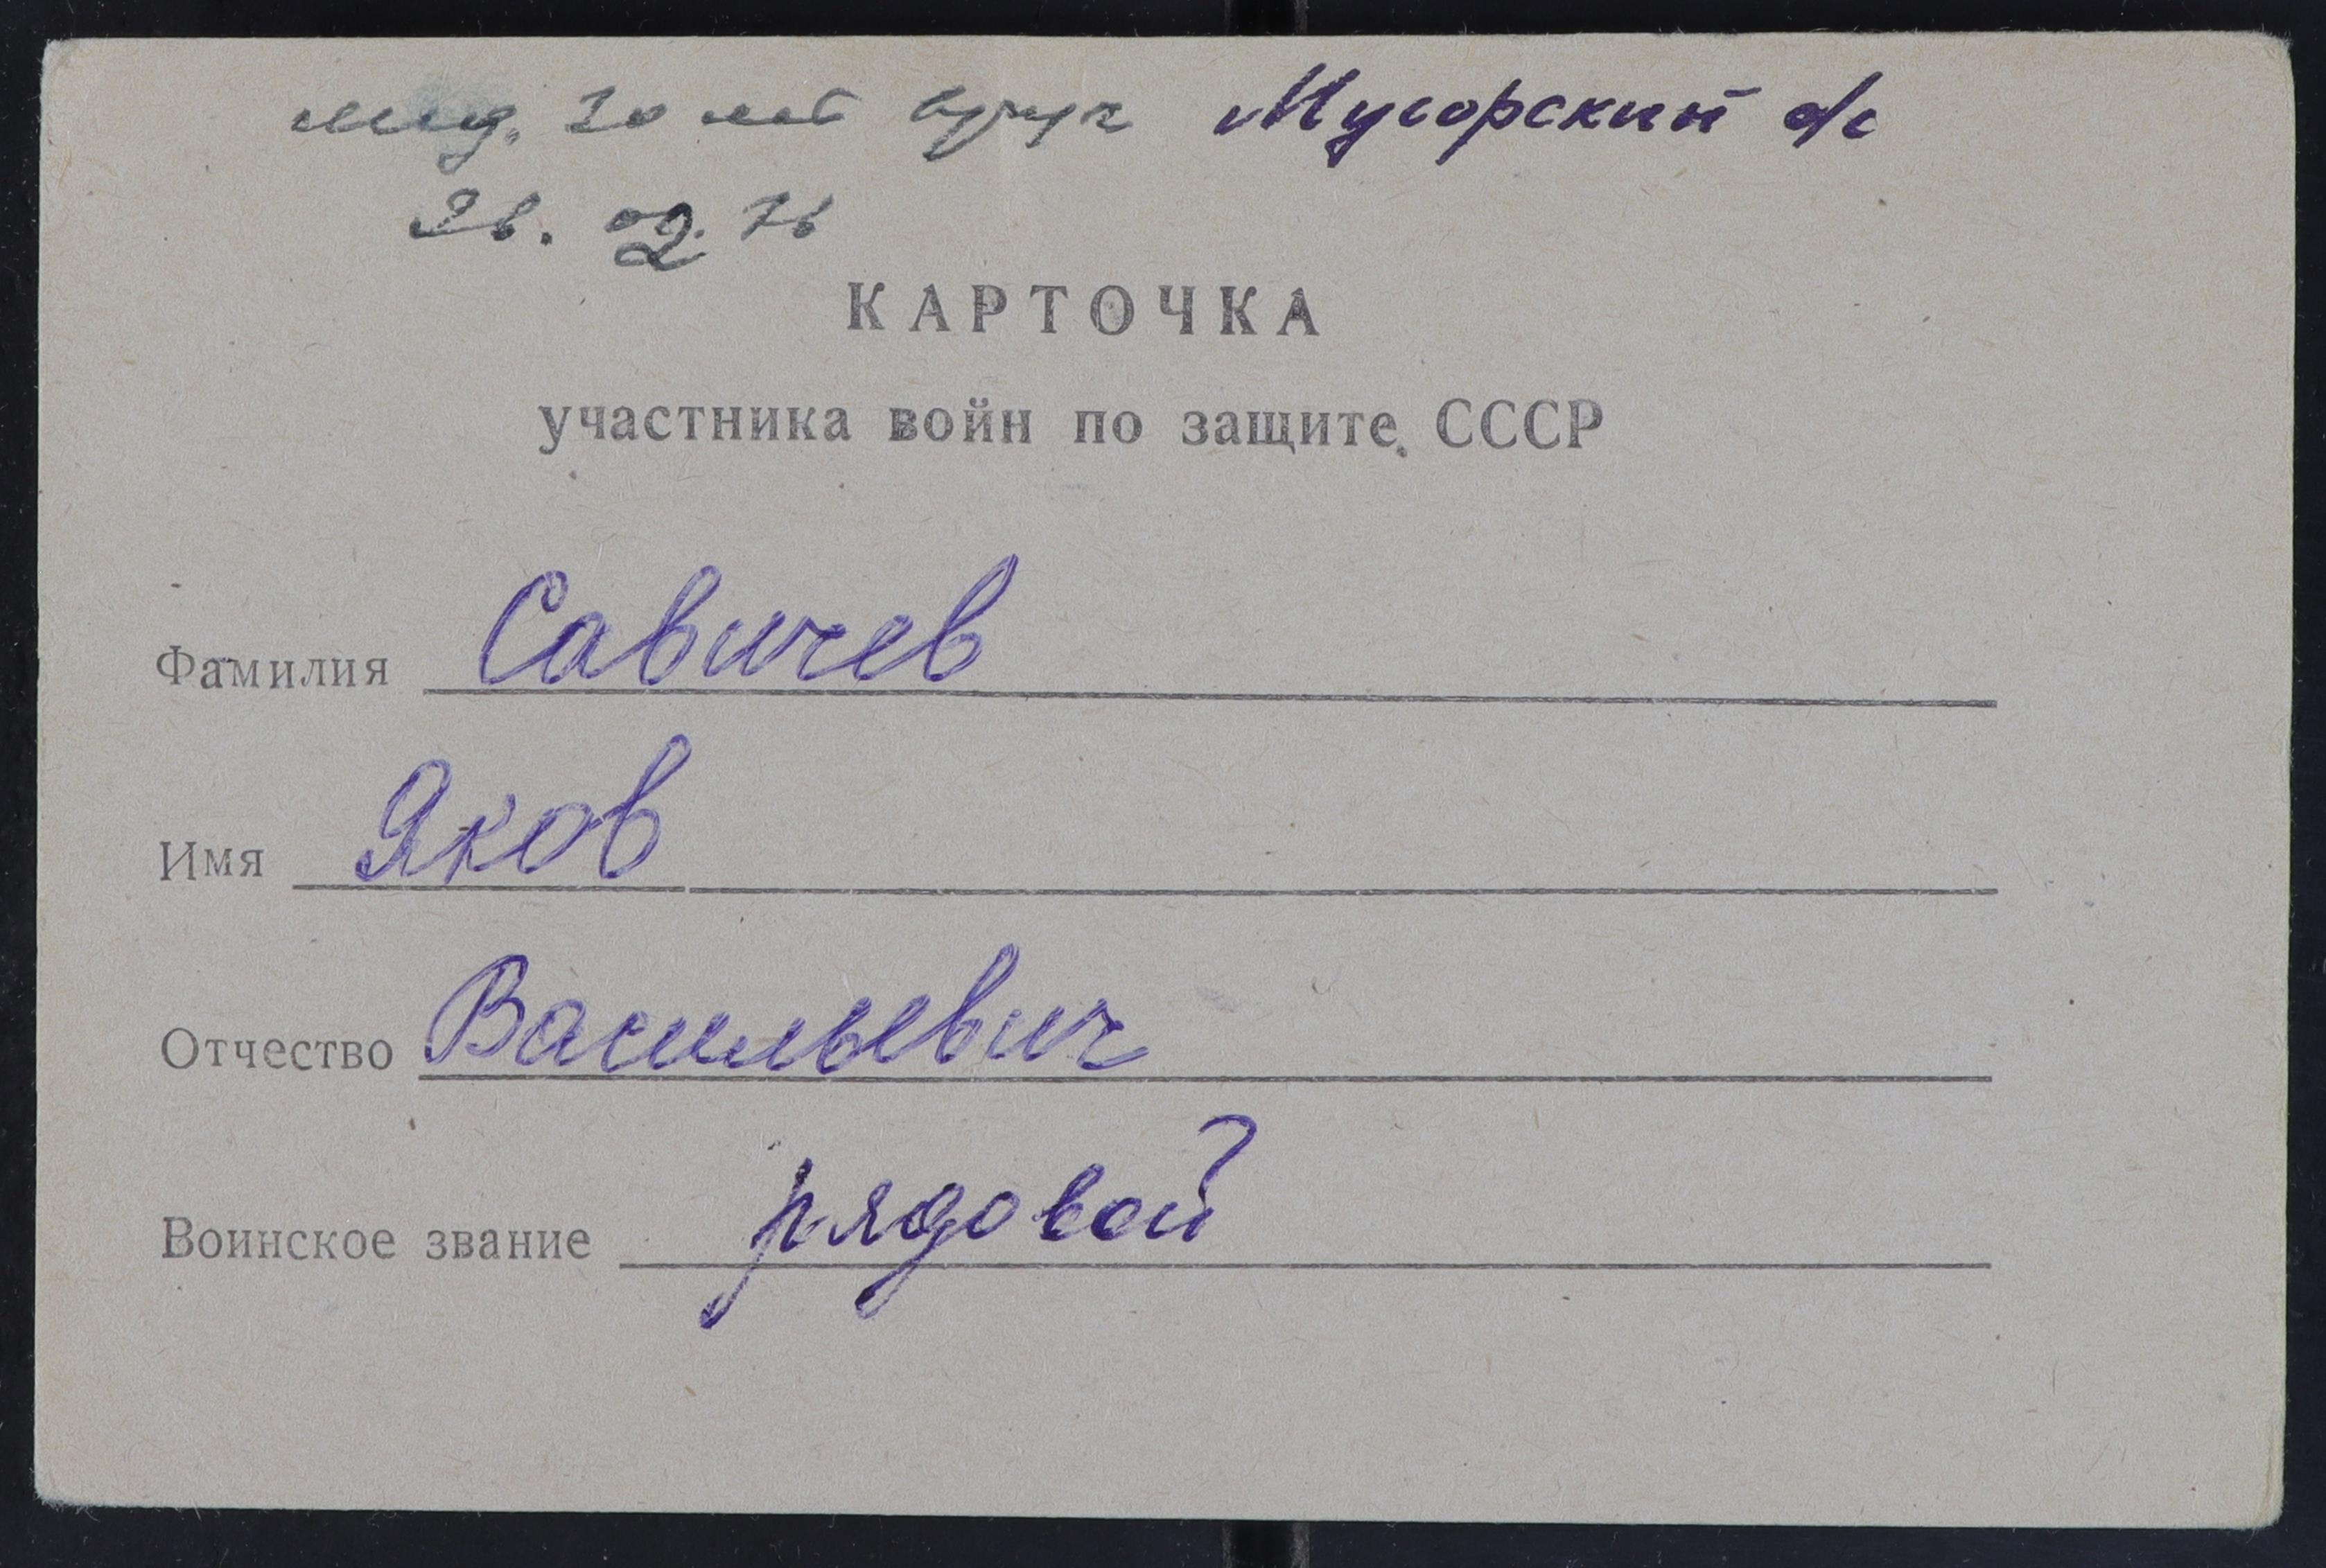 мед. 30 лет вруч Мусорский с/с
26. 02. 76
КАРТОЧКА
участника войн по защите СССР
Фамилия Савичев
Имя Яков
Отчество Васильевич
Воинское звание рядовой